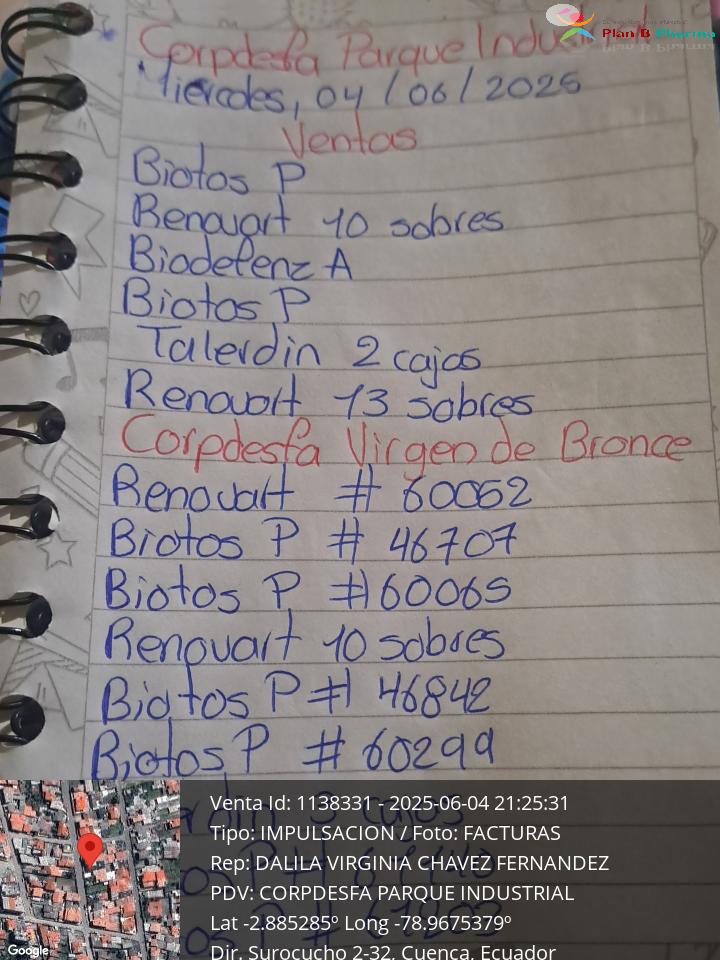 Plan B Pharma
Corpdesfa Parque Industrial
Miercoles, 04/06/2025
Ventas
Biotos P
Renovart 10 sobres
Biodefenz A
Biotos P
Talerdin 2 cajas
Renovart 13 sobres
Corpdesfa Virgen de Bronce
Renovart # 60062
Biotos P # 46707
Biotos P # 60065
Renovart 10 sobres
Biotos P # 46842
Biotos P # 60299
Venta Id: 1138331 - 2025-06-04 21:25:31
Tipo: IMPULSACION / Foto: FACTURAS
Rep: DALILA VIRGINIA CHAVEZ FERNANDEZ
PDV: CORPDESFA PARQUE INDUSTRIAL
Lat -2.885285º Long -78.9675379º
Dir. Surocucho 2-32, Cuenca, Ecuador
Google